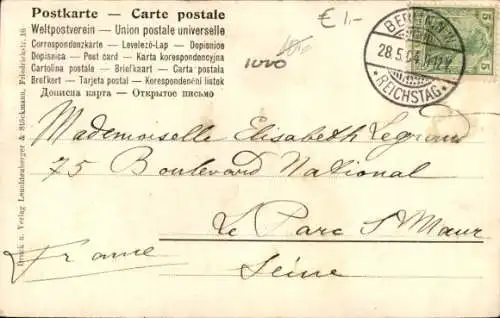 Postkarte — Carte postale
Weltpostverein — Union postale universelle
Correspondenzkarte — Levelezö-Lap — Dopisnice
Dopisnica — Post card — Karta korespondencyjna
Cartolina postale — Briefkaart — Carta postala
Brefkort — Tarjeta postal — Korespondenční listek
Дописна карта — Открытое письмо
€ 1,-
BERLIN
28.5.04.
*REICHSTAG*
5
5
Mademoiselle Elisabeth Legrand
75 Boulevard National
Le Parc St Maur
France
Seine
Druck u. Verlag Leuchtenberger & Stöckmann, Friedrichstr. 16